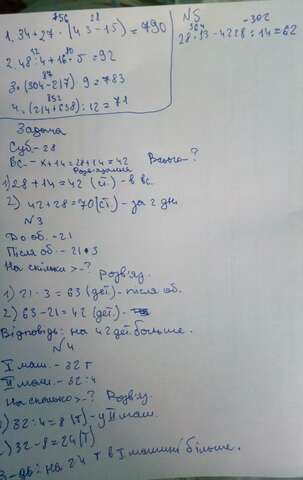 756 28
1. 34+27·(43-15)=790
12 80
2. 48:4+16·5=92
87
3·(304-217)·9=783
852
4. (214+638):12=71
N5
364 -302
28·13-4228:14=62
Задача
Суб.-28
Вс. - х+14=28+14=42 Всього-?
Розв'язання
1) 28+14=42 (ст.) - в вс.
2) 42+28=70(ст.) - за 2 дні
N3
До об. -21
Після об. - 21·3
На скільки >-? Розв'яз.
1) 21·3=63 (дет.) - після об.
2) 63-21=42 (дет.) -
Відповідь: на 42 дет. больше.
N4
I маш. - 32 т
II маш. - 32:4
На скільки >-? Розв'яз.
) 32:4=8 (т) - у II маш.
) 32-8=24(т)
В-дь: на 24 т в I машині більше.